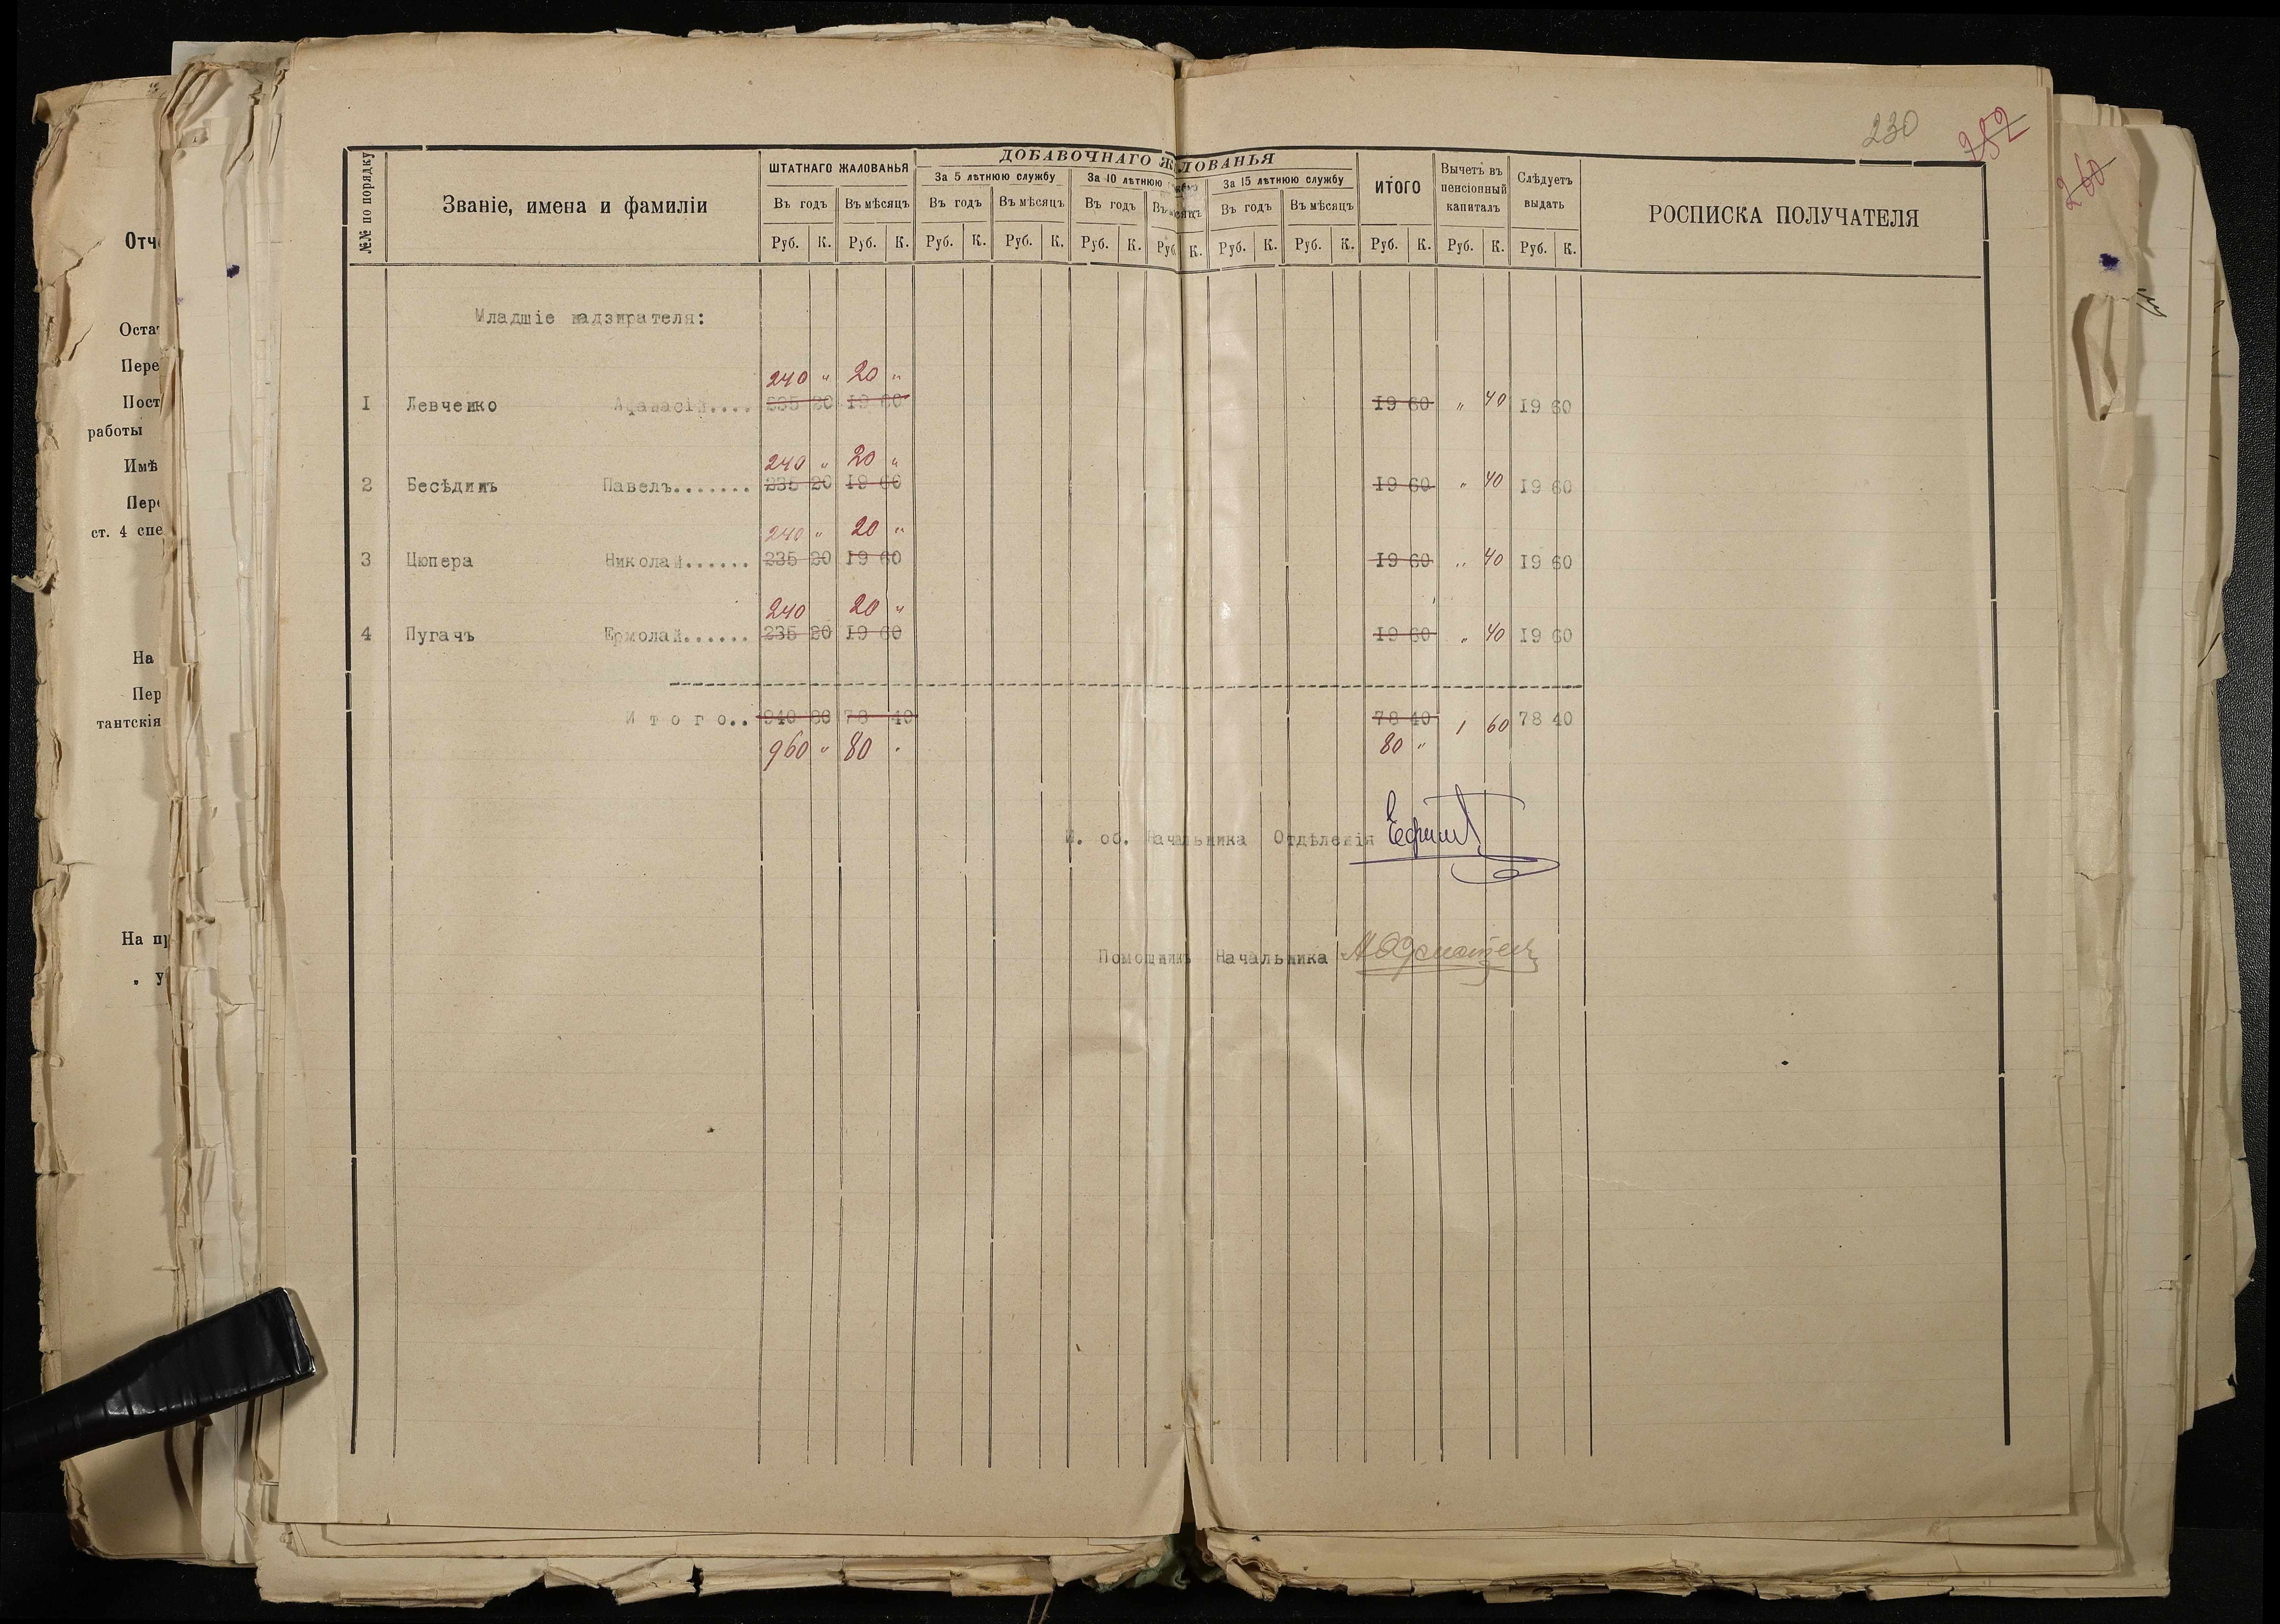 230
252
260
№№ по порядку
Званіе, имена и фамиліи
ШТАТНАГО ЖАЛОВАНЬЯ
ДОБАВОЧНАГО ЖАЛОВАНЬЯ
За 5 лѣтнюю службу
За 10 лѣтнюю
За 15 лѣтнюю службу
ИТОГО
Вычетъ въ пенсіонный капиталъ
Слѣдуетъ выдать
РОСПИСКА ПОЛУЧАТЕЛЯ
Въ годъ Въ мѣсяцъ Въ годъ Въ мѣсяцъ Въ годъ Въ мѣсяцъ Въ годъ Въ мѣсяцъ
Руб. К. Руб. К. Руб. К. Руб. К. Руб. К. Руб. К. Руб. К. Руб. К. Руб. К. Руб. К. Руб. К.
Младшіе надзирателя:
240 " 20 "
1 Левченко Афанасій.... 235 20 19 60 19 60 " 40 19 60
240 " 20 "
2 Бесѣдинъ Павелъ....... 235 20 19 60 19 60 " 40 19 60
240 " 20 "
3 Цюпера Николай...... 235 20 19 60 19 60 " 40 19 60
240 20 "
4 Пугачъ Ермолай...... 235 20 19 60 19 60 " 40 19 60
Итого.. 940 80 78 40 78 40 1 60 78 40
960 " 80 " 80 "
И. об. Начальника Отдѣленія
Помощникъ Начальника
Отч
Оста
Пере
Пост
работы
Имѣ
Пер
ст. 4 спе
На
Пер
тантскія
На пр
„ у